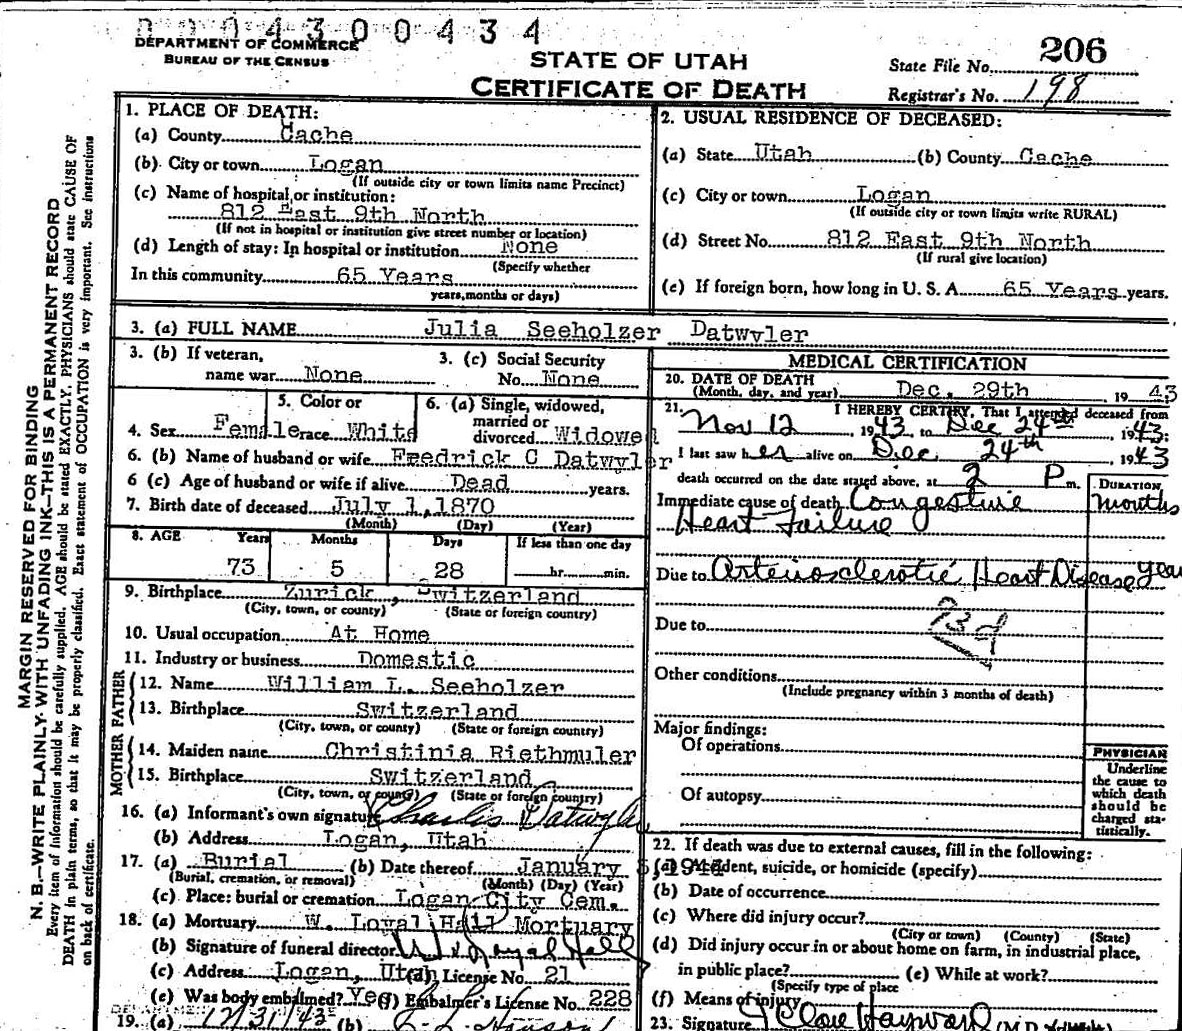 0 0 0 4 3 0 0 4 3 4
DEPARTMENT OF COMMERCE
BUREAU OF THE CENSUS
STATE OF UTAH
CERTIFICATE OF DEATH
State File No. 206
Registrar's No. 198
MARGIN RESERVED FOR BINDING
N. B.—WRITE PLAINLY WITH UNFADING INK—THIS IS A PERMANENT RECORD
Every item of information should be carefully supplied. AGE should be stated EXACTLY. PHYSICIANS should state CAUSE OF
DEATH in plain terms, so that it may be properly classified. Exact statement of OCCUPATION is very important. See instructions
on back of certificate.
1. PLACE OF DEATH:
(a) County Cache
(b) City or town Logan
(If outside city or town limits name Precinct)
(c) Name of hospital or institution:
812 East 9th North
(If not in hospital or institution give street number or location)
(d) Length of stay: In hospital or institution None
(Specify whether
In this community 65 Years
years, months or days)
2. USUAL RESIDENCE OF DECEASED:
(a) State Utah (b) County Cache
(c) City or town Logan
(If outside city or town limits write RURAL)
(d) Street No. 812 East 9th North
(If rural give location)
(e) If foreign born, how long in U. S. A. 65 Years years.
3. (a) FULL NAME Julia Seeholzer Datwyler
3. (b) If veteran,
name war None
3. (c) Social Security
No. None
4. Sex Female
5. Color or
race White
6. (a) Single, widowed,
married or
divorced Widowed
6. (b) Name of husband or wife Fredrick C Datwyler
6 (c) Age of husband or wife if alive Dead years.
7. Birth date of deceased July 1, 1870
(Month) (Day) (Year)
8. AGE Years Months Days If less than one day
73 5 28 hr. min.
9. Birthplace Zurick, Switzerland
(City, town, or county) (State or foreign country)
10. Usual occupation At Home
11. Industry or business Domestic
FATHER
12. Name William L. Seeholzer
13. Birthplace Switzerland
(City, town, or county) (State or foreign country)
MOTHER
14. Maiden name Christinia Riethmuler
15. Birthplace Switzerland
(City, town, or county) (State or foreign country)
16. (a) Informant's own signature Charles Datwyler
(b) Address Logan, Utah
17. (a) Burial (b) Date thereof January 3, 1944
(Burial, cremation, or removal) (Month) (Day) (Year)
(c) Place: burial or cremation Logan City Cem.
18. (a) Mortuary W. Loyal Hall Mortuary
(b) Signature of funeral director W. Loyal Hall
(c) Address Logan, Utah (d) License No. 21
(e) Was body embalmed? Yes (f) Embalmer's License No. 228
19. (a) 12/31/43 (b)
MEDICAL CERTIFICATION
20. DATE OF DEATH
(Month, day, and year) Dec. 29th 1943
21. I HEREBY CERTIFY, That I attended deceased from
Nov 12, 1943 to Dec 24th, 1943;
I last saw her alive on Dec 24th 1943
death occurred on the date stated above, at 2 P m.
DURATION
Immediate cause of death Congestive months
Heart Failure
Due to Arteriosclerotic Heart Disease year
Due to
Other conditions
(Include pregnancy within 3 months of death)
Major findings:
Of operations
Of autopsy
PHYSICIAN
Underline
the cause to
which death
should be
charged sta-
tistically.
22. If death was due to external causes, fill in the following:
(a) Accident, suicide, or homicide (specify)
(b) Date of occurrence
(c) Where did injury occur?
(City or town) (County) (State)
(d) Did injury occur in or about home on farm, in industrial place,
in public place? (e) While at work?
(Specify type of place
(f) Means of injury
23. Signature Hayward (M.D.